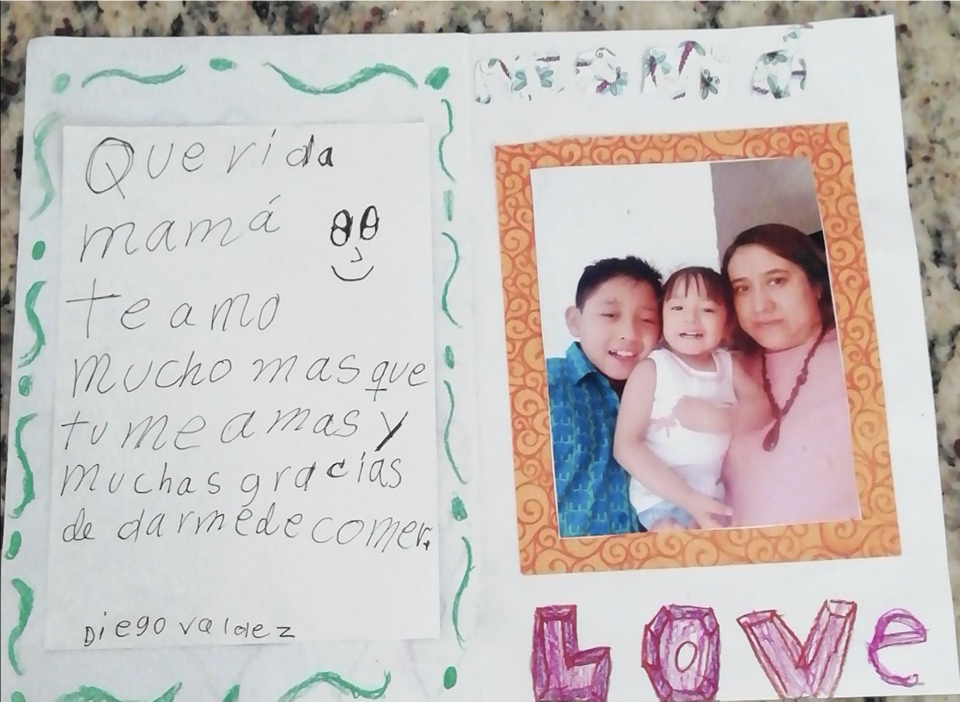 Querida
mamá
te amo
mucho mas que
tu me amas y
muchas gracias
de darme de comer.
Diego valdez
MAMÁ
LOVe